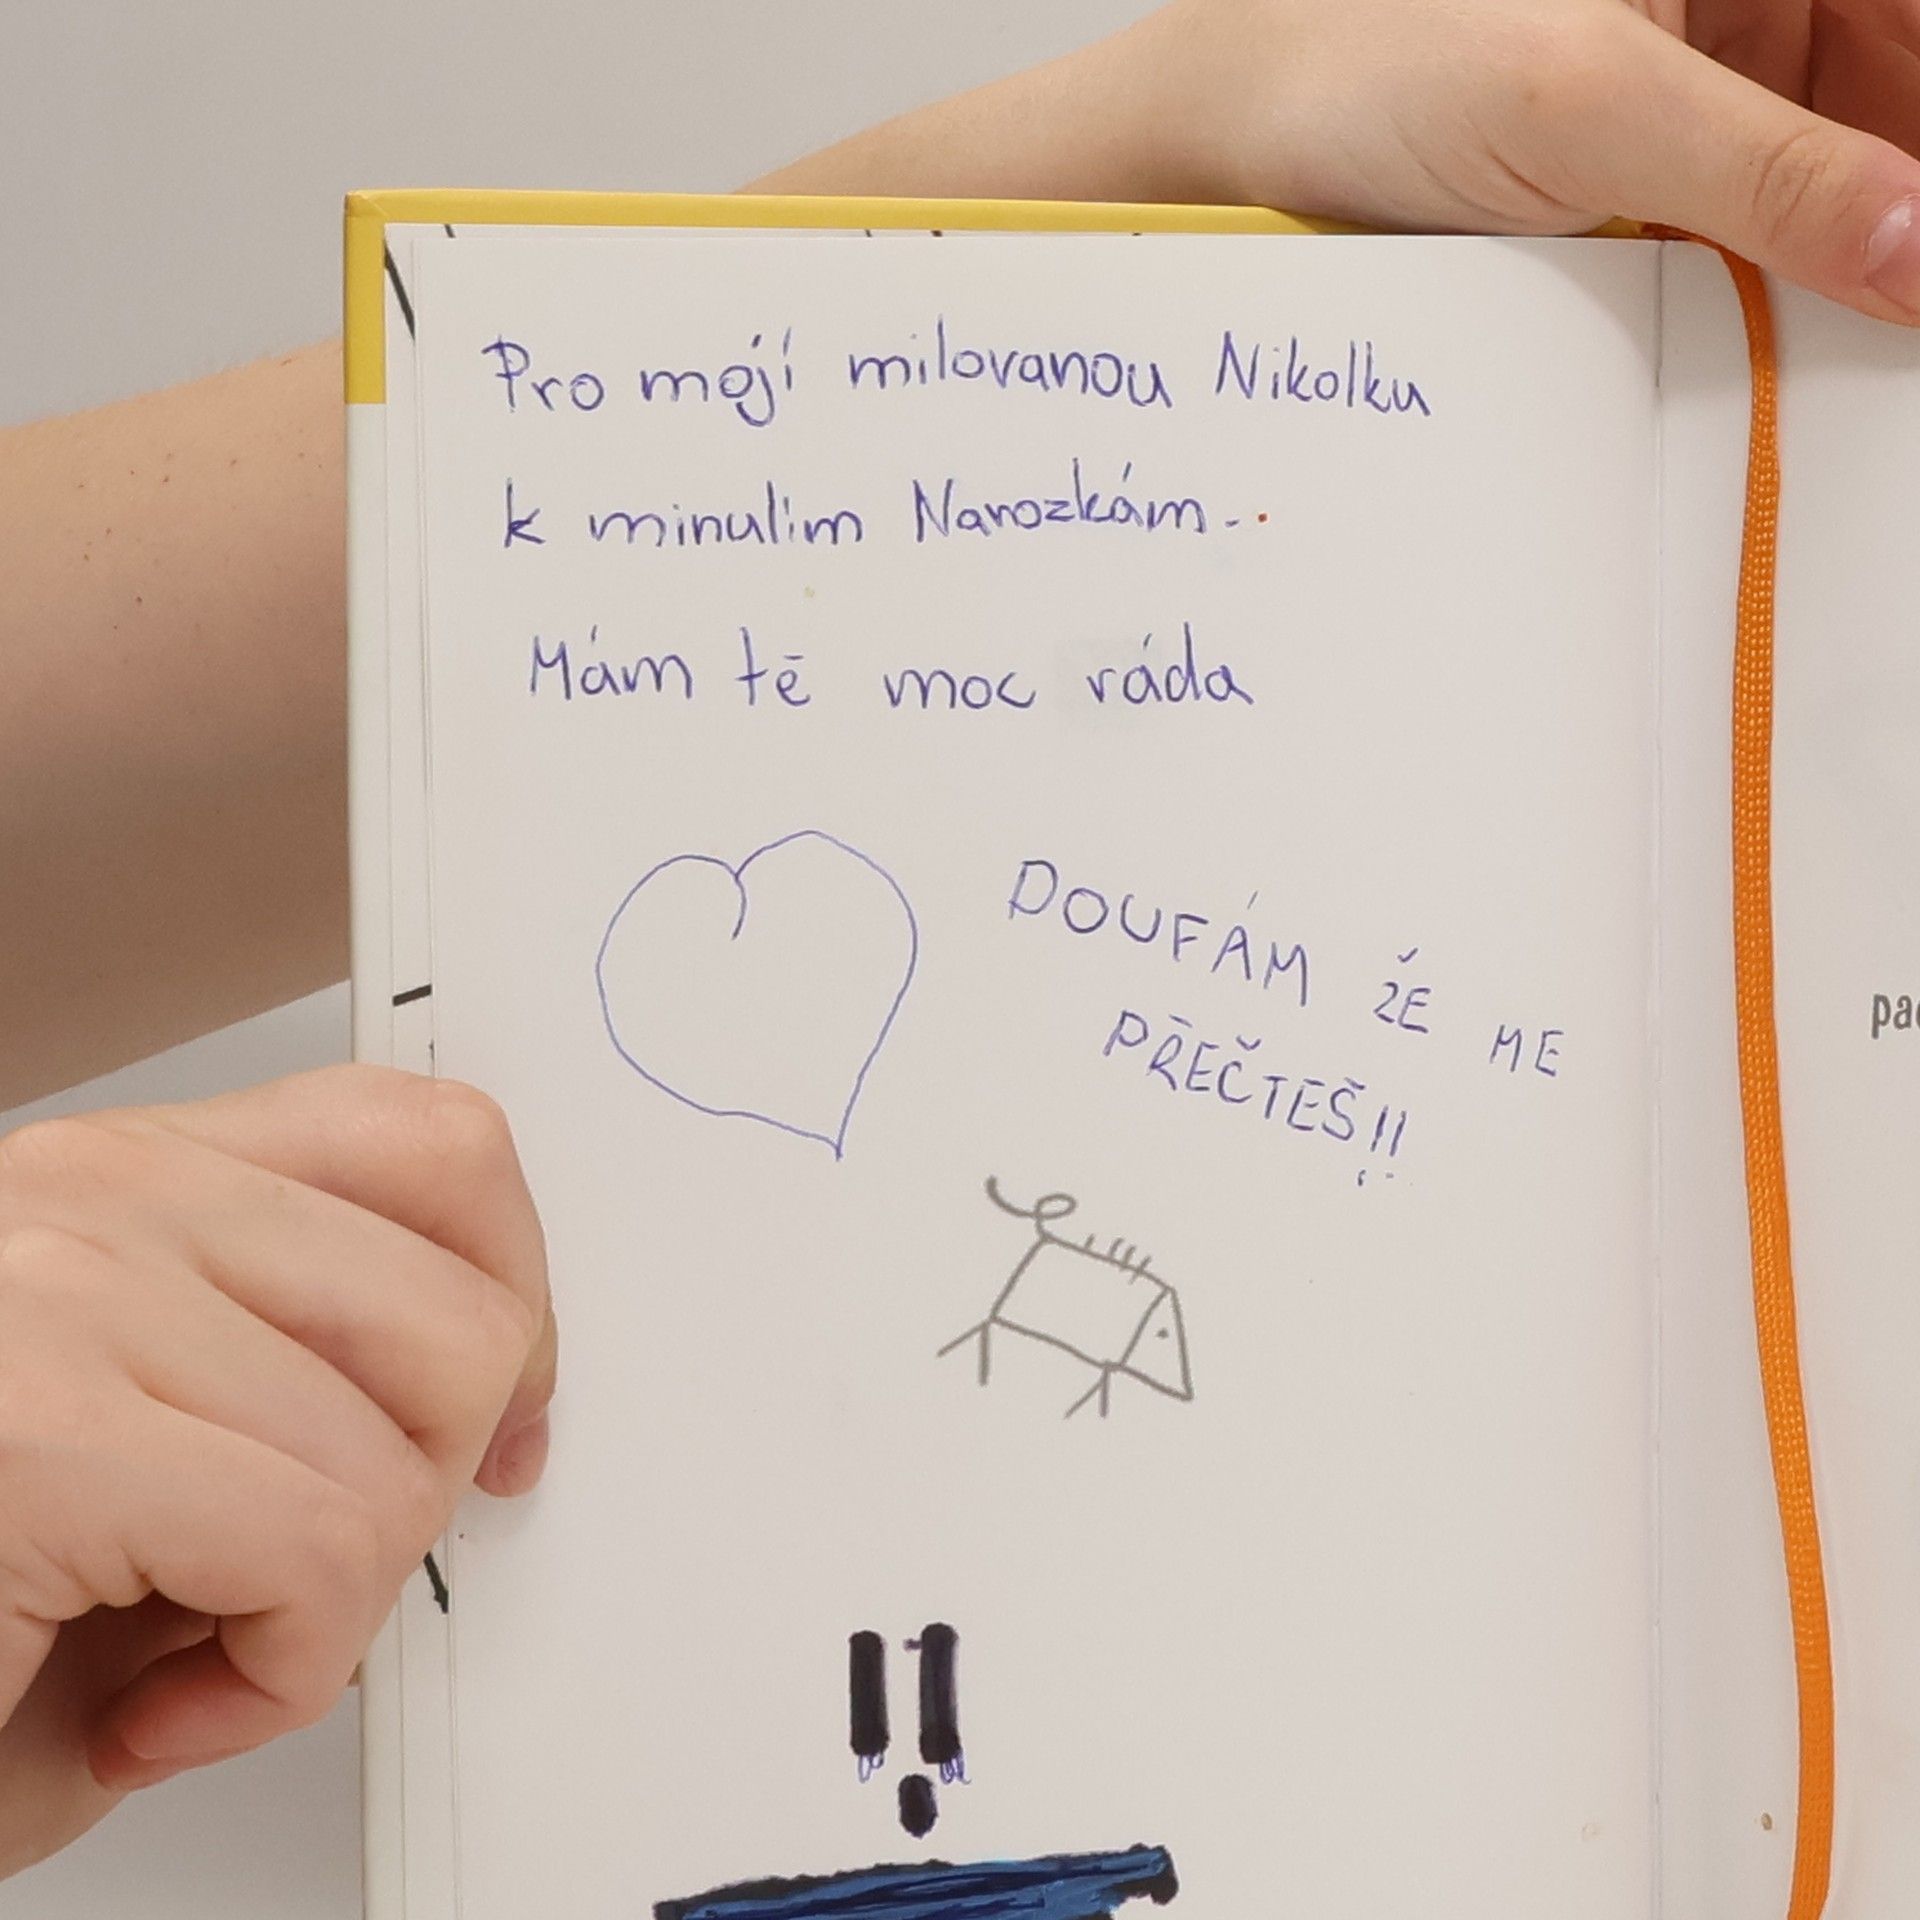 Pro mojí milovanou Nikolku
k minulim Narozkám..
Mám tě moc ráda
DOUFÁM ŽE ME
PŘEČTEŠ!!